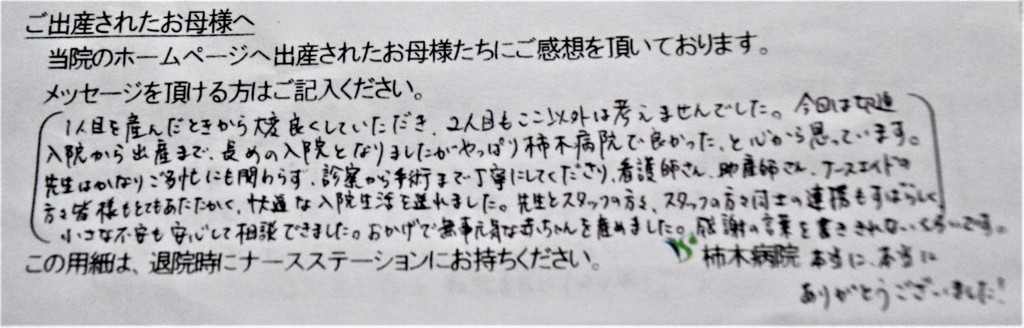 ご出産されたお母様へ
当院のホームページへ出産されたお母様たちにご感想を頂いております。
メッセージを頂ける方はご記入ください。
1人目を産んだときから大変良くしていただき、2人目もここ以外は考えませんでした。今回は切迫
入院から出産まで、長めの入院となりましたがやっぱり柿木病院で良かった、と心から思っています。
先生はかなりご多忙にも関わらず、診察から手術まで丁寧にしてくださり、看護師さん、助産師さん、ナースエイドの
方々皆様もとてもあたたかく、快適な入院生活を送れました。先生とスタッフの方々、スタッフの方々同士の連携もすばらしく
小さな不安も安心して相談できました。おかげで無事元気な赤ちゃんを産めました。感謝の言葉を書ききれないくらいです。
この用紙は、退院時にナースステーションにお持ちください。 柿木病院 本当に、本当に
ありがとうございました!